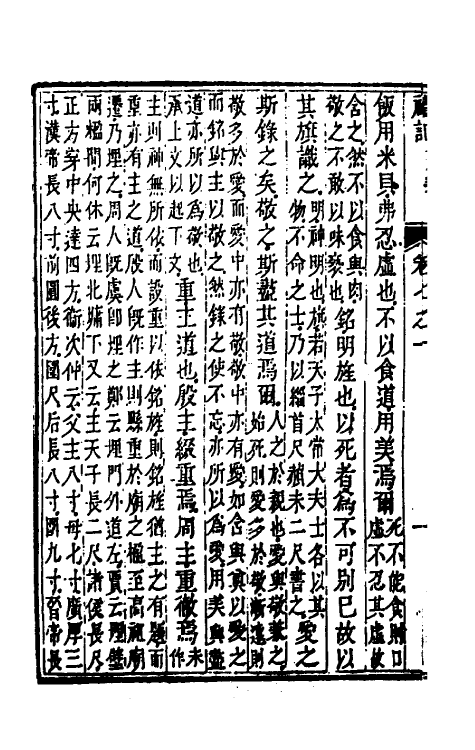 飯用米貝弗忍虛也不以食道用美焉爾死不能食則口
虛不忍其虛故
含之然不以食與肉
敬之不敢以味褻也銘明旌也以死者爲不可别巳故以
其旗識之明神明也旌若天子太常大夫士各以其
物不命之士乃以緇首尺赬末二尺書之愛之
斯錄之矣敬之斯盡其道焉爾人之於親也愛與敬兼之
始死則愛多於敬漸遠則
敬多於愛而愛中亦有敬敬中亦有愛如含與奠以愛之
而銘與主以敬之然錄之使不忘亦所以爲愛用美與盡
道亦所以爲敬也
承上文以起下文重主道也殷主綴重焉周主重徹焉未
作
主則神無所依而設重以依銘旌則銘旌猶主之有題而
重亦有主之道殷人旣作主則縣重於廟之楹至高祖廟
遷乃埋之周人旣虞卽埋之鄭云埋門外道左賈云埋壁
兩楹間何休云埋北牖下又云主天子長二尺諸侯長尺
正方穿中央達四方衛次仲云父主八寸母七寸廣厚三
寸漢帝長八寸前圓後方圍尺后長八寸圍九寸晉帝長